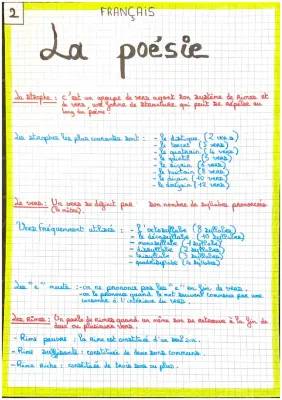 2
FRANÇAIS
La poésie
La strophe : c'est un groupe de vers ayant son système de rimes et
de vers, une forme de structure qui peut se répéter au
long du poème.
Les strophes les plus courantes sont : - le distique (2 vers)
- le tercet (3 vers)
- le quatrain (4 vers)
- le quintil (5 vers)
- le sizain (6 vers)
- le huitain (8 vers)
- le dizain (10 vers)
- le douzain (12 vers)
Le vers : Un vers se définit par son nombre de syllabes prononcées
Vers fréquemment utilisés : - l'octosyllabe (8 syllabes)
- le décasyllabe (10 syllabes)
- monosyllabe (1 syllabe)
- dissyllabe (2 syllabes)
- trisyllabe (3 syllabes)
- quadrisyllabe (4 syllabes)
Les "e" muets : - on ne prononce pas les "e" en fin de vers.
- on le prononce quand le mot suivant commence par une
consonne à l'intérieur du vers
Les rimes : On parle de rimes quand un même son se retrouve à la fin de
deux ou plusieurs vers.
- Rime pauvre : la rime est constituée d'un seul son.
- Rime suffisante : constituée de deux sons communs.
- Rime riche : constituée de trois sons ou plus.